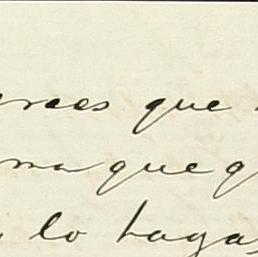 crees que
ma que q
lo hagas